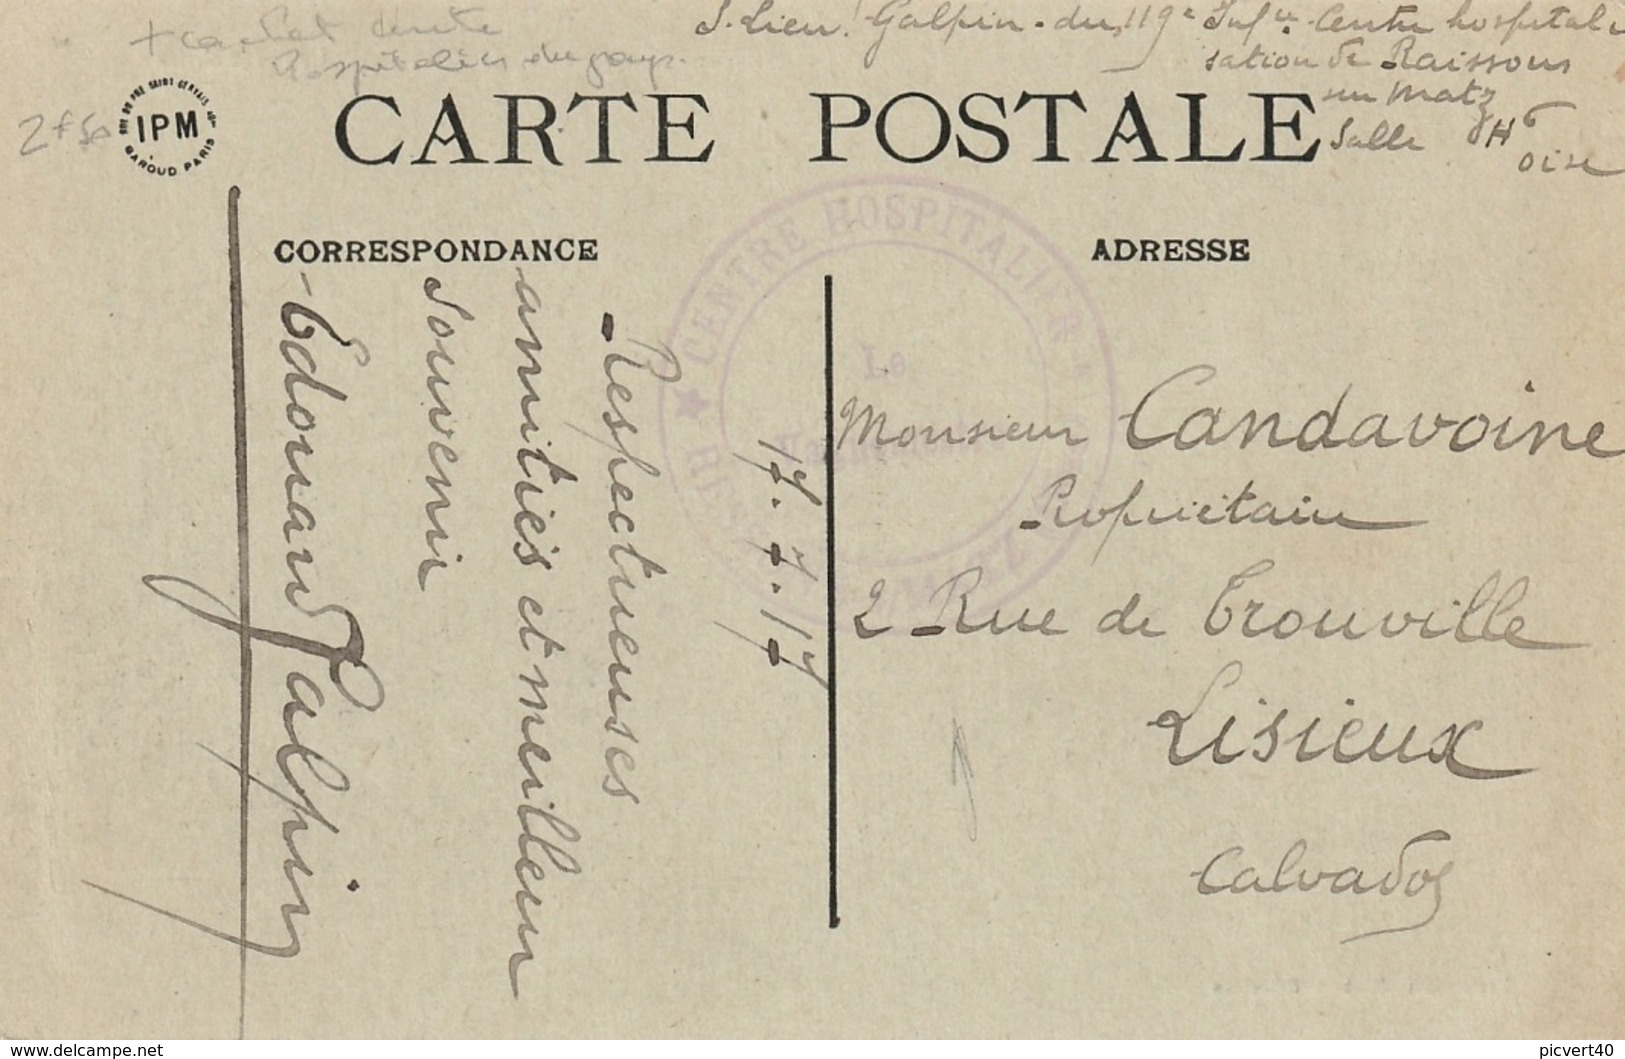 + cachet Centre
Hospitalier du
S. Lieut Galpin du 119e Infie Centre hospitali
sation de Raissons
sur Matz
Salle H 6
Oise
2f50
RUE DU PRE SAINT GERVAIS
IPM
BAROUD PARIS
CARTE POSTALE
CORRESPONDANCE
ADRESSE
CENTRE HOSPITALIER
Le
17.7.17
Respectueuses
amitiés et meilleur
Souvenir
Edouard Galpin
Monsieur Candavoine
Propriétaire
2 Rue de Trouville
Lisieux
Calvados
www.delcampe.net
picvert40